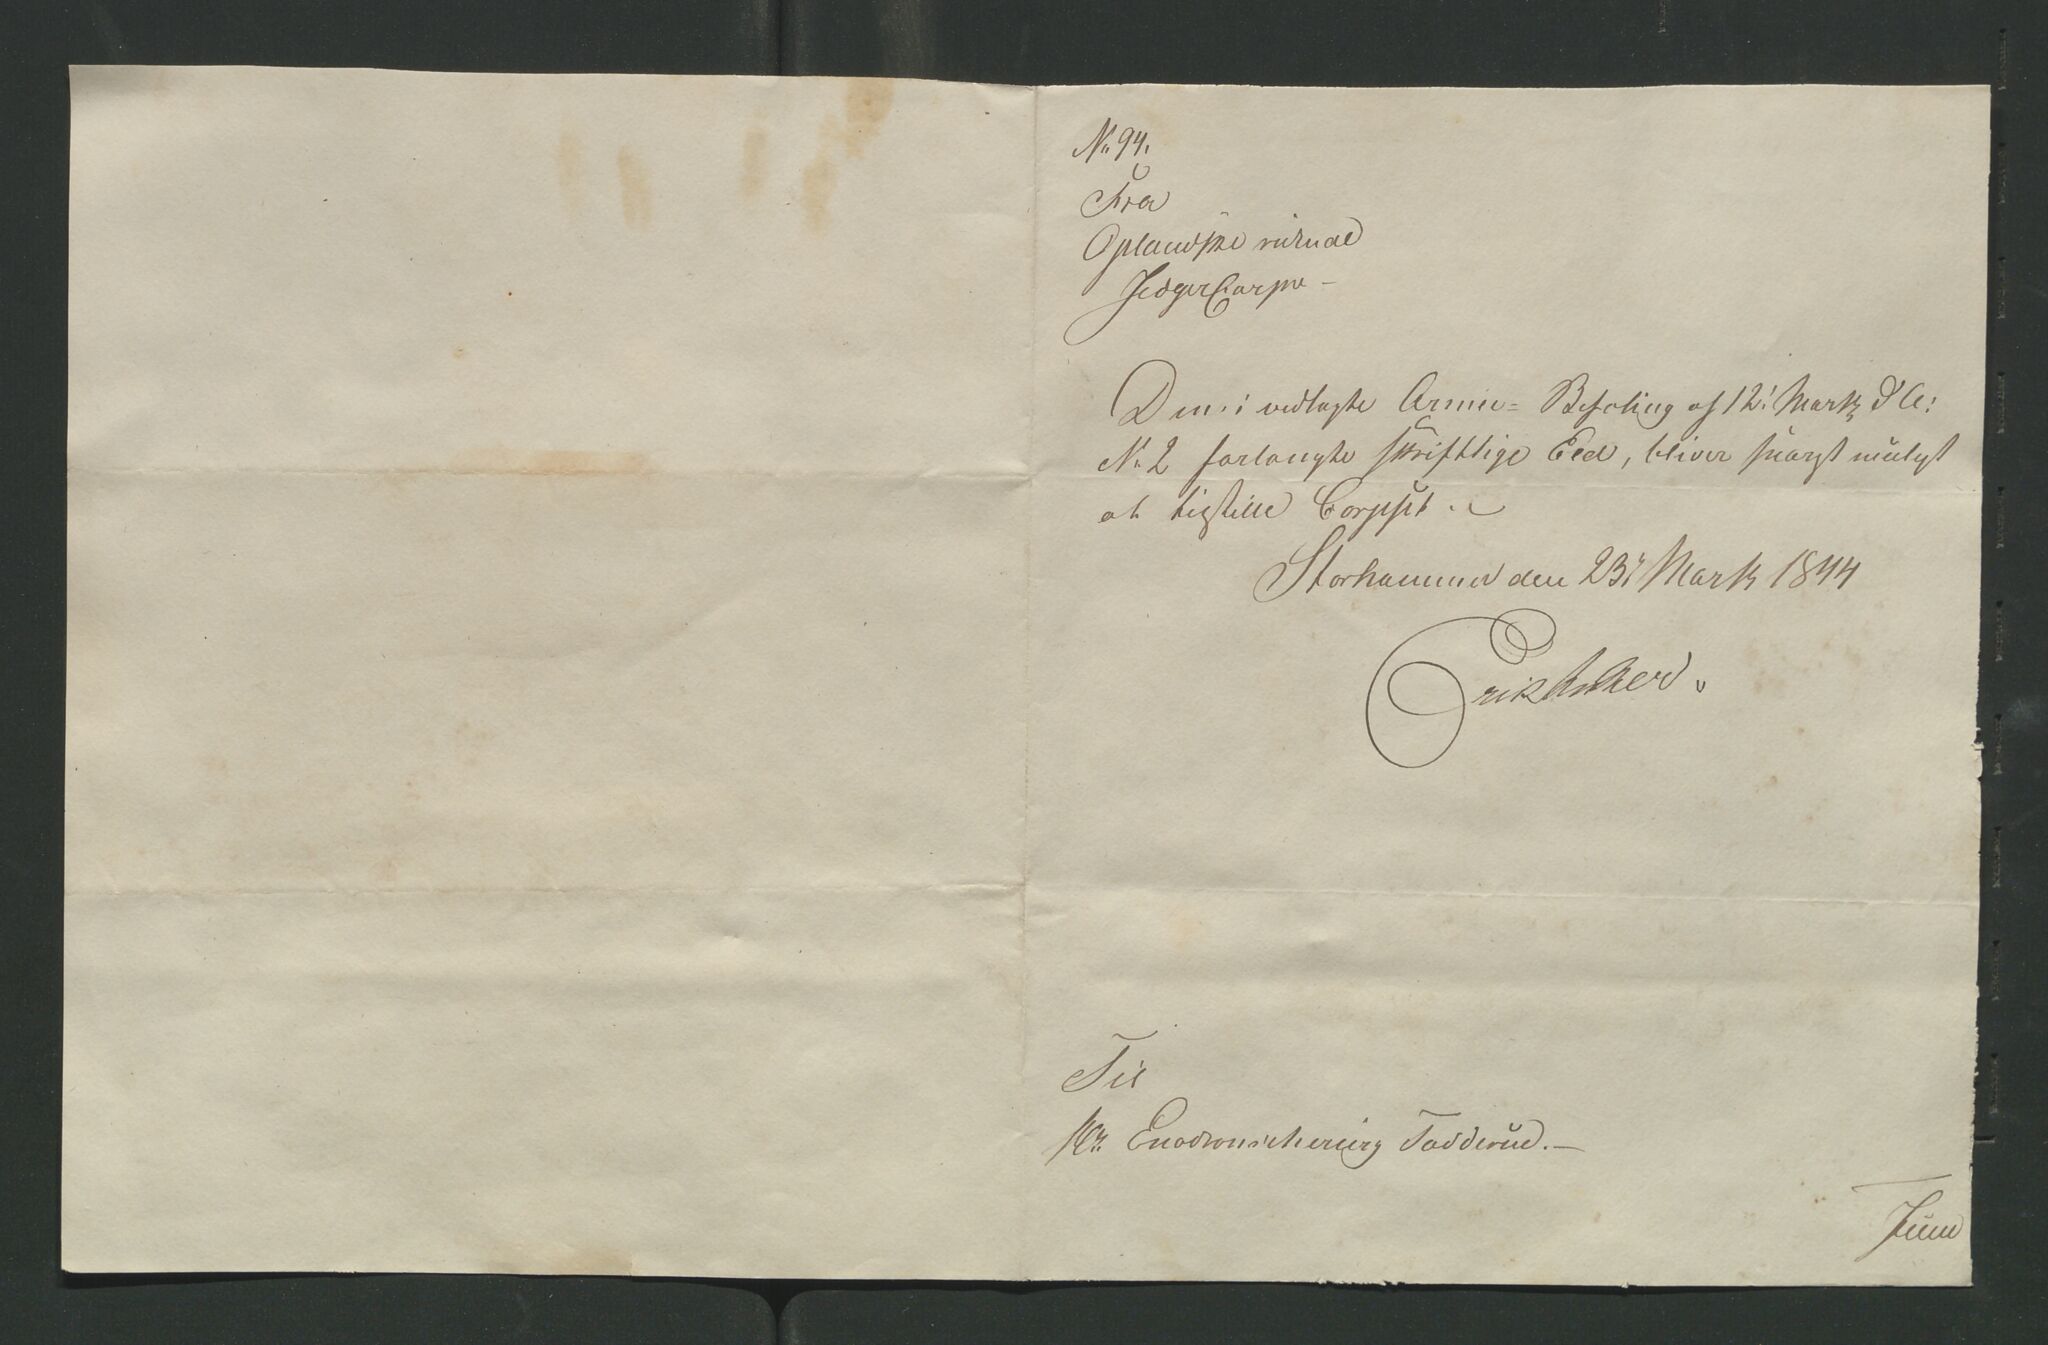 No 94.
Fra
Oplandske ridende
JægerCorps –
Den i vedlagte Armee- Befaling af 12t Marts d A:
No 2 forlangte skriftlige Eed, bliver snarest muligt
at tilstille Corpset.
Storhammer den 23t Marts 1844
Erik Anker.
Til
Hr Escadronschirurg Fodderud. –